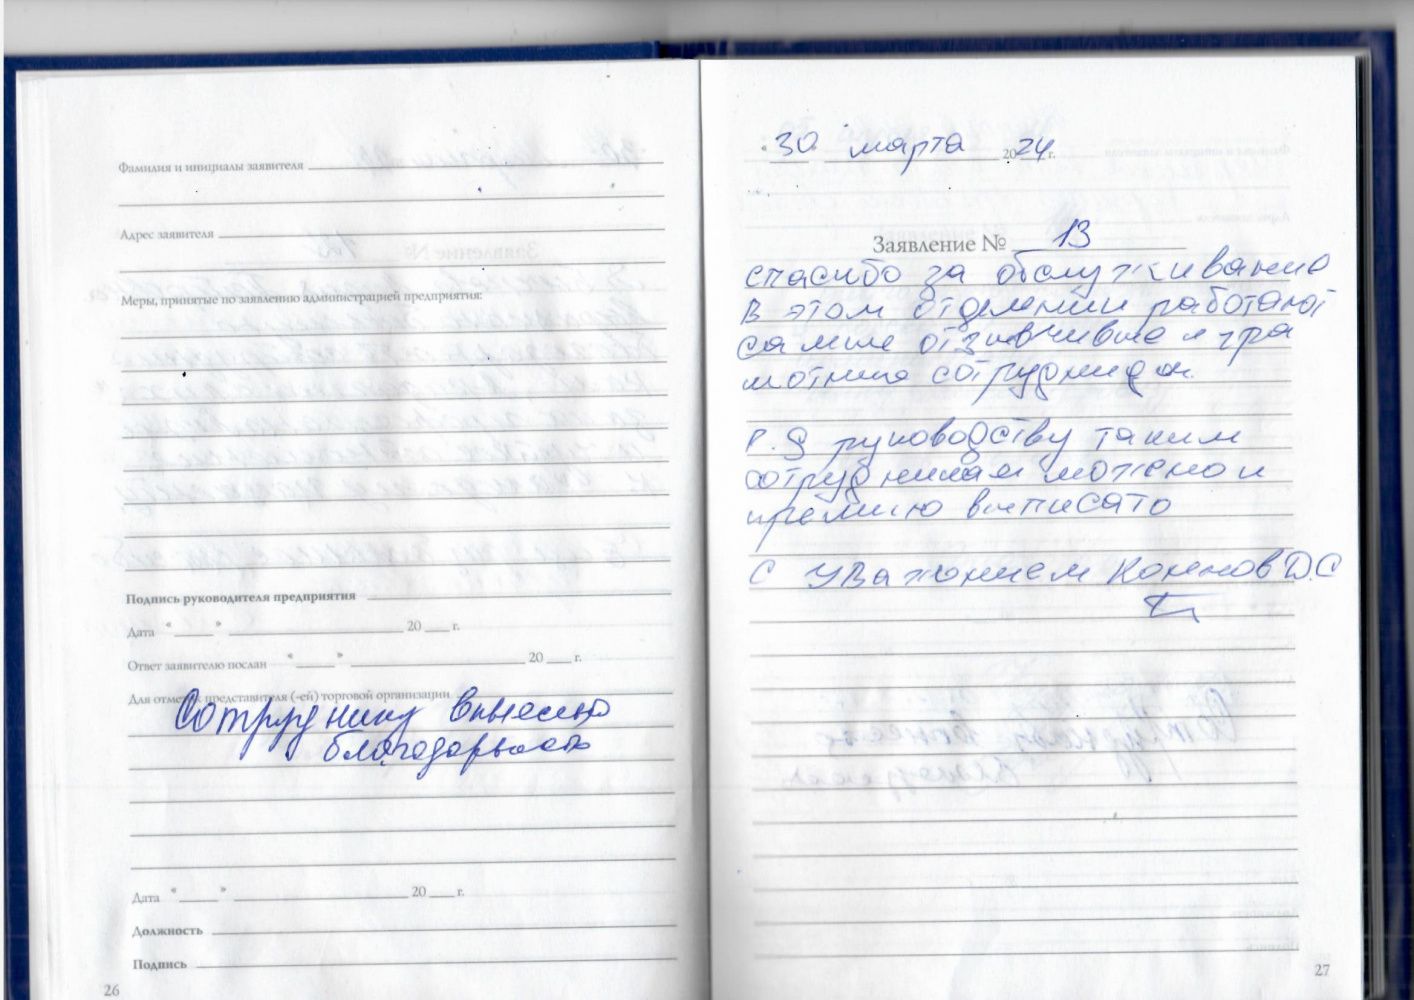 Фамилия и инициалы заявителя
Адрес заявителя
Меры, принятые по заявлению администрацией предприятия:
Подпись руководителя предприятия
Дата " " 20 г.
Ответ заявителю послан " " 20 г.
Для отметок представителя (-ей) торговой организации
Сотруднику вынесено
благодарность
Дата " " 20 г.
Должность
Подпись
26
"30" марта 2024 г.
Заявление № 13
спасибо за обслуживание
В этом отделении работают
самые отзывчивые и гра
мотные сотрудники.
P.S руководству таким
сотрудникам можно и
премию выписать
С уважением Коннов Д.С
27